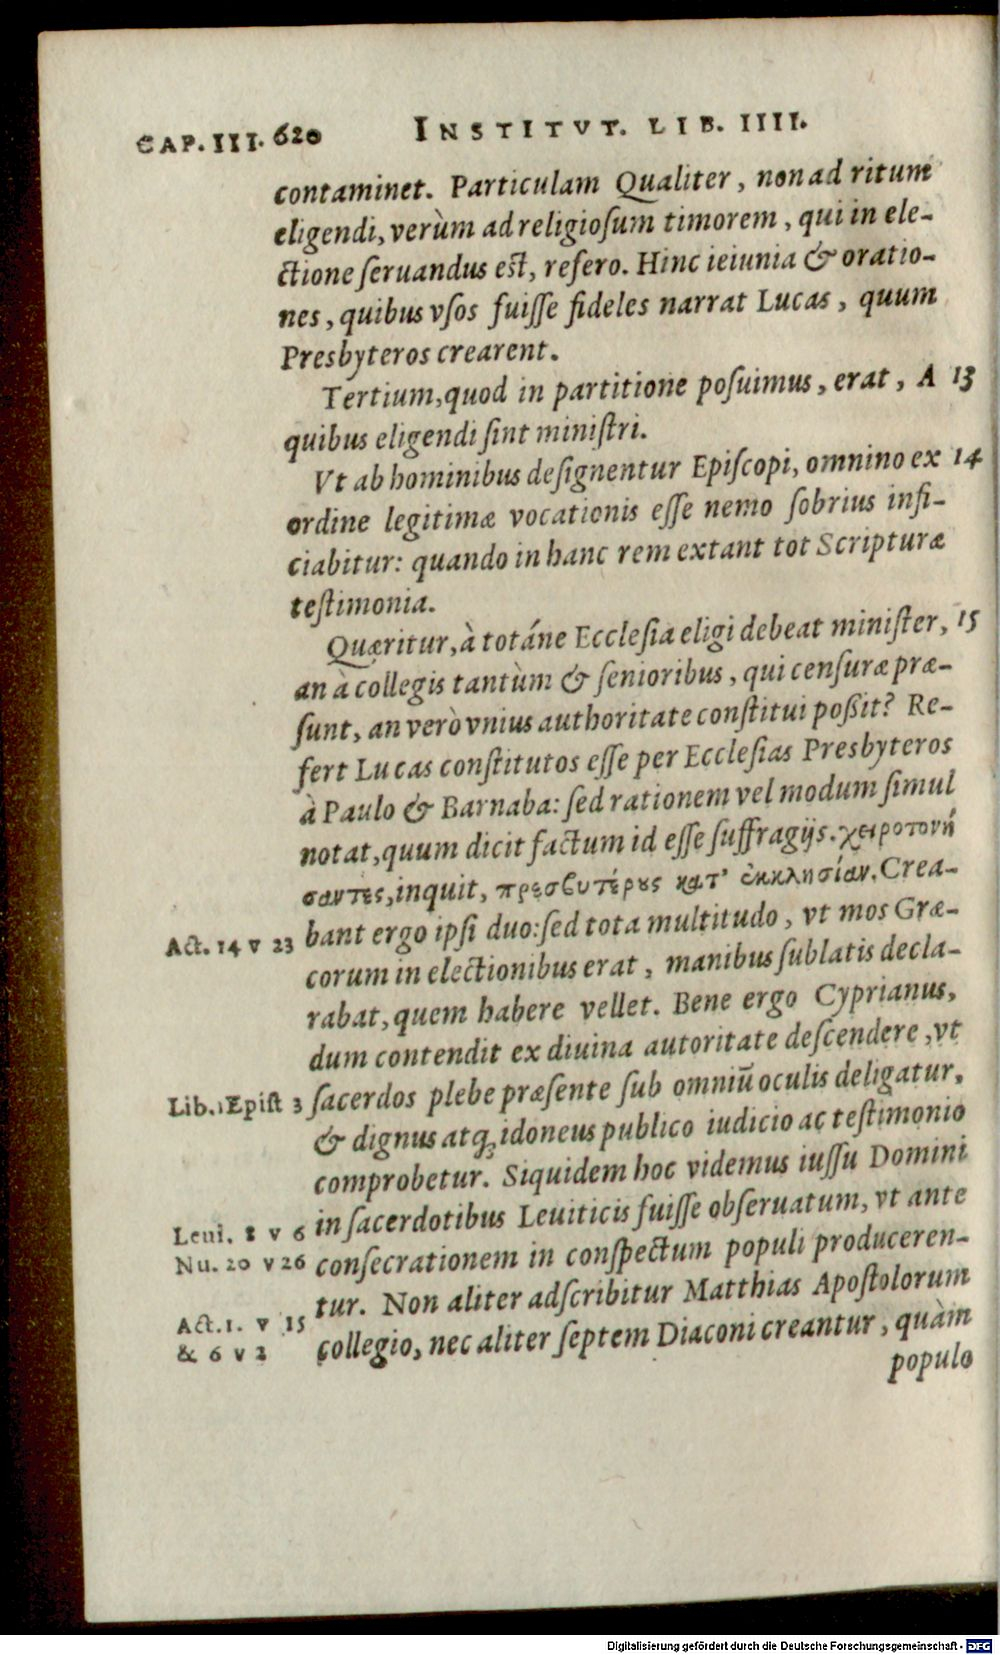 CAP. III. 620 INSTITVT. LIB. IIII.
contaminet. Particulam Qualiter, non ad ritum
eligendi, verùm ad religiosum timorem, qui in ele-
ctione seruandus est, refero. Hinc ieiunia & oratio-
nes, quibus vsos fuisse fideles narrat Lucas, quum
Presbyteros crearent.
Tertium, quod in partitione posuimus, erat, A 13
quibus eligendi sint ministri.
Vt ab hominibus designentur Episcopi, omnino ex 14
ordine legitimæ vocationis esse nemo sobrius infi-
ciabitur: quando in hanc rem extant tot Scripturæ
testimonia.
Quæritur, à totáne Ecclesia eligi debeat minister, 15
an à collegis tantùm & senioribus, qui censuræ præ-
sunt, an verò vnius authoritate constitui poßit? Re-
fert Lucas constitutos esse per Ecclesias Presbyteros
à Paulo & Barnaba: sed rationem vel modum simul
notat, quum dicit factum id esse suffragijs. χειροτονή
σαντες, inquit, πρεσβυτέρους κατ' ἐκκλησίαν. Crea-
Act. 14 v 23 bant ergo ipsi duo: sed tota multitudo, vt mos Græ-
corum in electionibus erat, manibus sublatis decla-
rabat, quem habere vellet. Bene ergo Cyprianus,
dum contendit ex diuina autoritate descendere, vt
Lib. 1 Epist 3 sacerdos plebe præsente sub omniū oculis deligatur,
& dignus atq; idoneus publico iudicio ac testimonio
comprobetur. Siquidem hoc videmus iussu Domini
Leui. 8 v 6 in sacerdotibus Leuiticis fuisse obseruatum, vt ante
Nu. 20 v 26 consecrationem in conspectum populi produceren-
tur. Non aliter adscribitur Matthias Apostolorum
Act. 1. v 15 collegio, nec aliter septem Diaconi creantur, quàm
& 6 v 2
populo
Digitalisierung gefördert durch die Deutsche Forschungsgemeinschaft - DFG